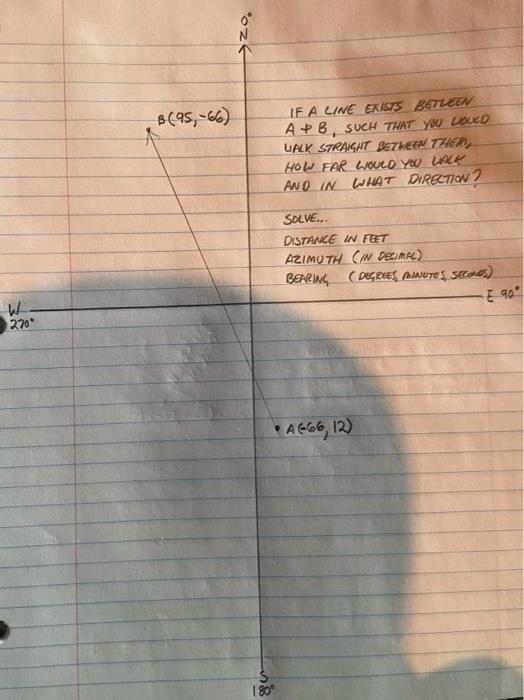 N 0°
B (95, -66)
IF A LINE EXISTS BETWEEN
A + B, SUCH THAT YOU WOULD
WALK STRAIGHT BETWEEN THEM,
HOW FAR WOULD YOU WALK
AND IN WHAT DIRECTION?
SOLVE...
DISTANCE IN FEET
AZIMUTH (IN DECIMAL)
BEARING (DEGREES, MINUTES, SECONDS)
E 90°
W
270°
A (-66, 12)
S
180°